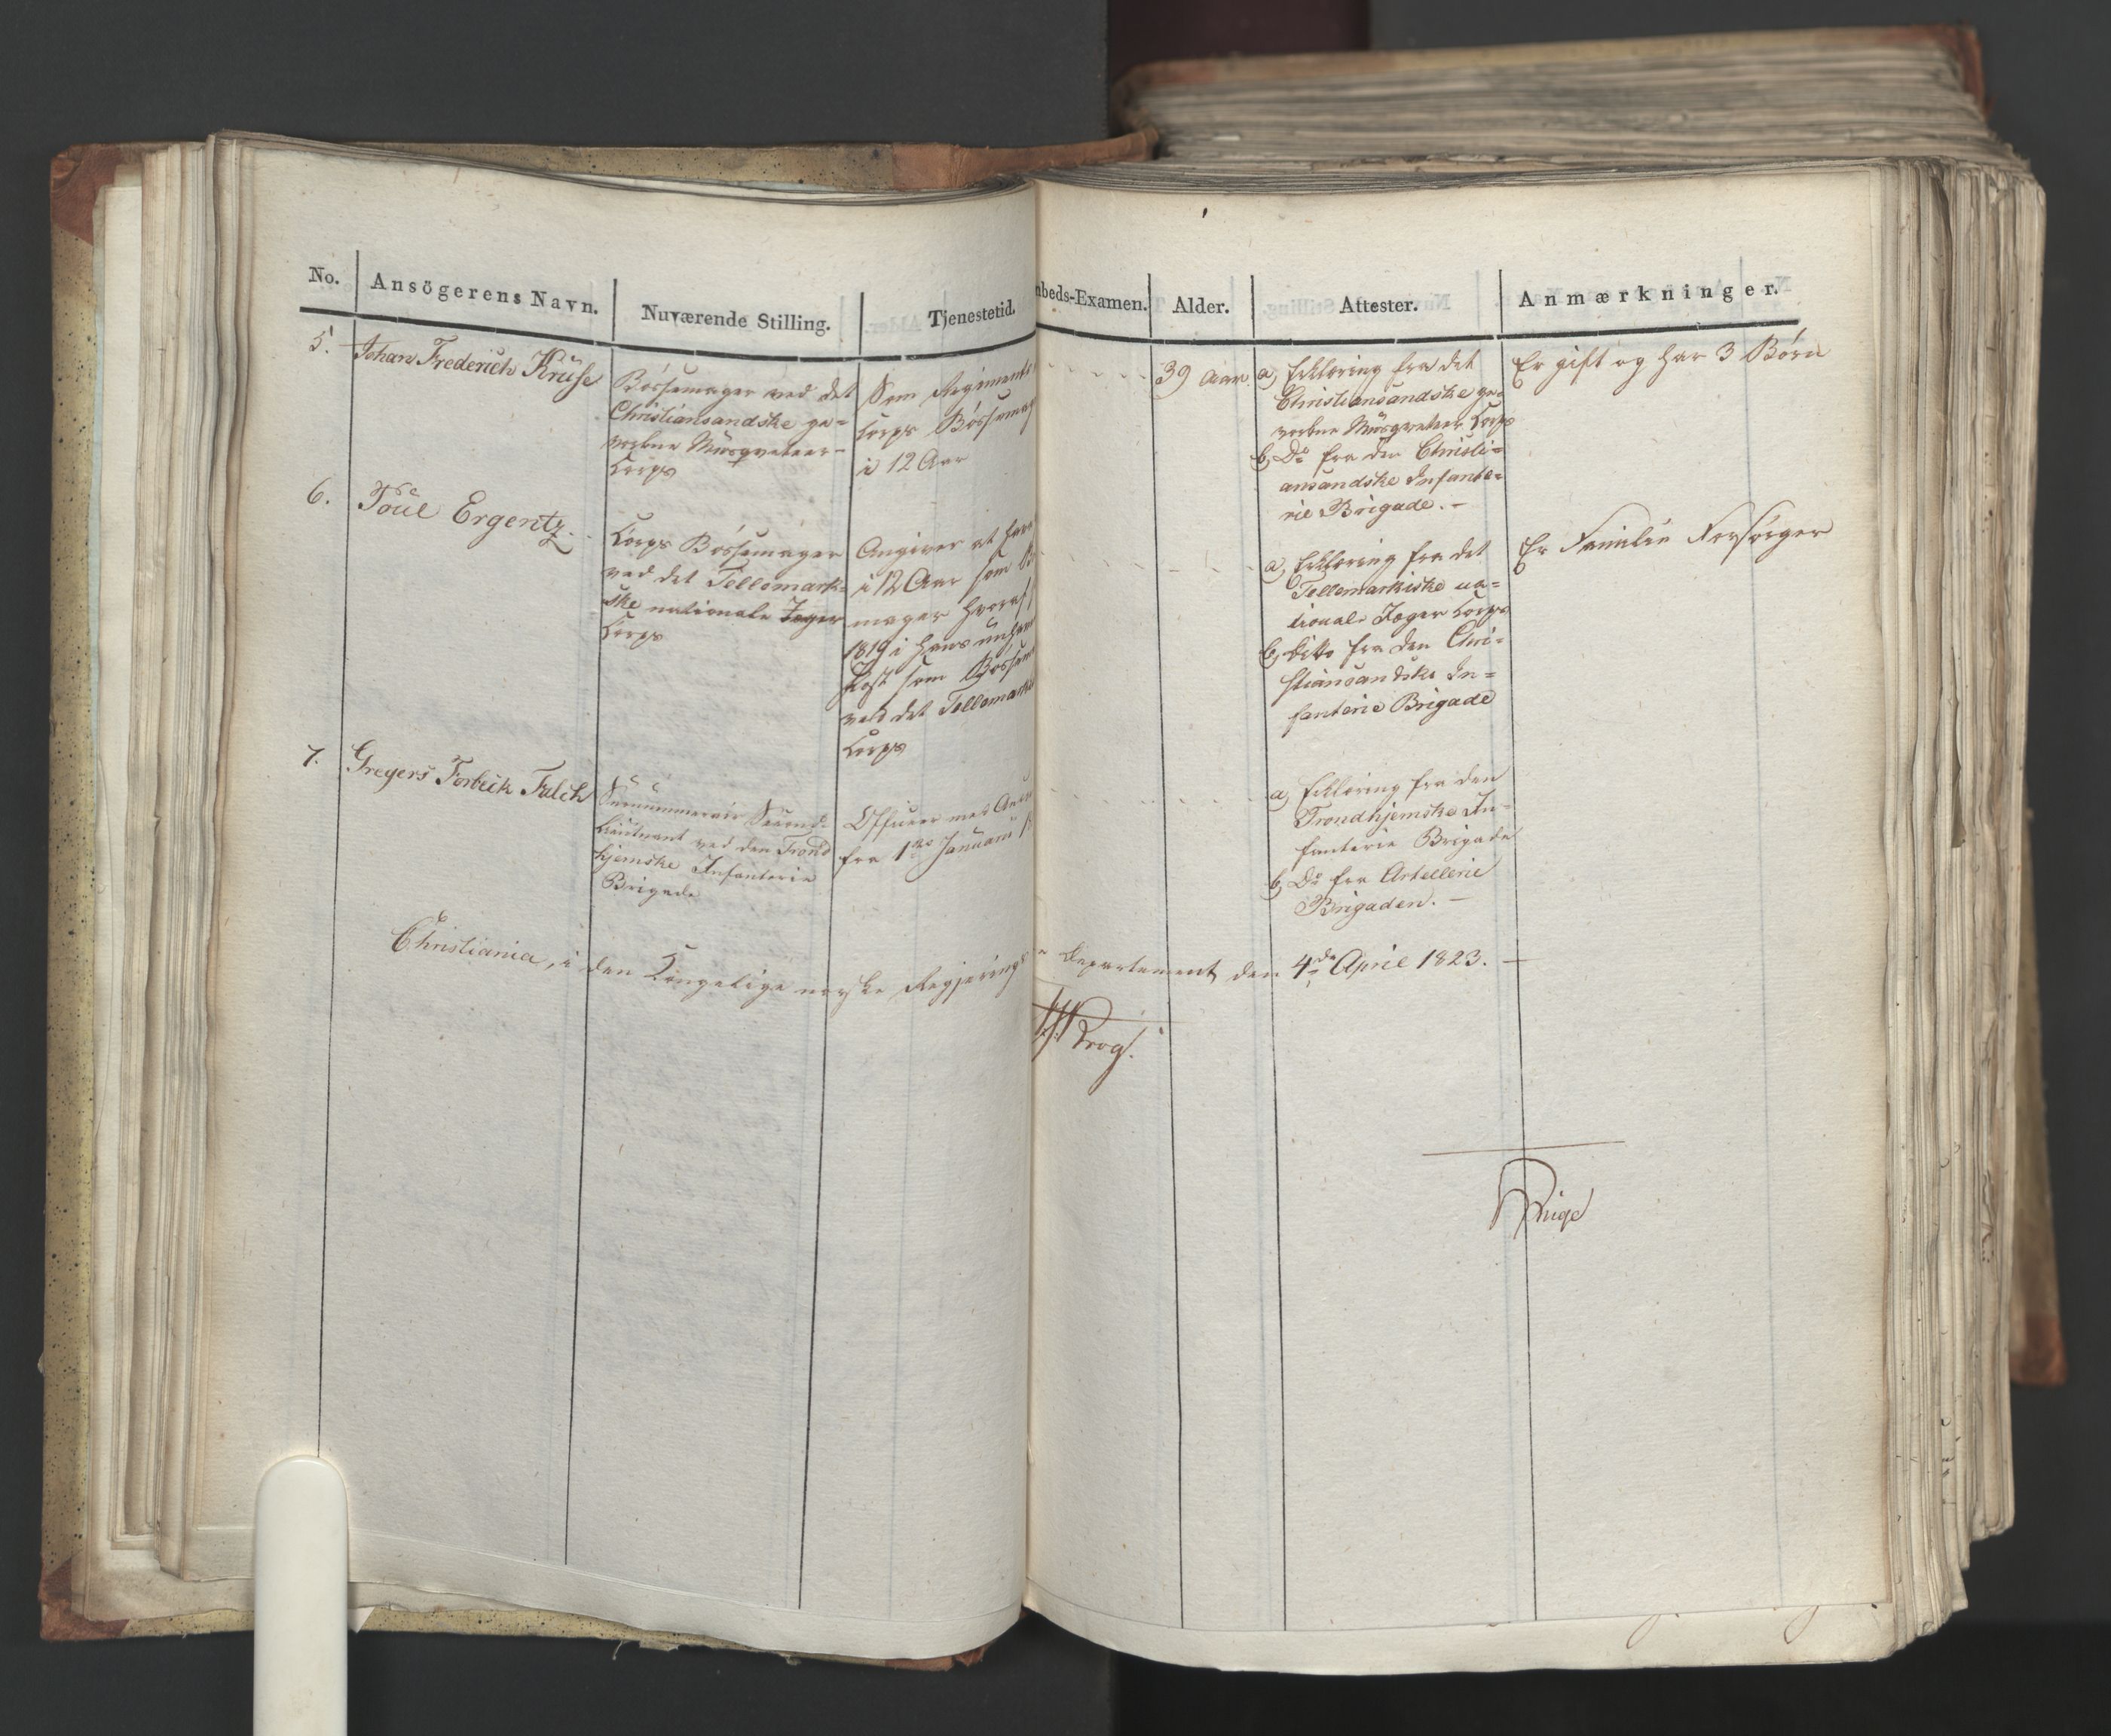 No.
Ansögerens Navn.
Nuværende Stilling.
Tjenestetid.
mbeds-Examen.
Alder.
Attester.
Anmærkninger.
5.
Johan Frederich Kruse
Bössemager ved det
Christiansandske ge=
vorbne Musqveteer-
Corps
Som Regiments
Corps Bössemag
i 12 Aar
39 Aar.
a, Erklæring fra det
Christiansandske ge=
vorbne Musqveteer Corps
b, Do fra den Christi=
ansandske Infante=
rie Brigade. —
Er gift og har 3 Börn
6.
Poul Ergentz.
Corps Bössemager
ved det Tellemark=
ske nationale Jæger
Corps
Angiver at have
i 12 Aar som B
mager hvoraf
1819 i hans
Post som Bössem
ved det Tellemark
Corps
a, Erklæring fra det
Tellemarkiske na=
tionale Jæger Corps
b, ditto fra den Chri=
stiansandske In=
fanterie Brigade
Er Familie Forsörger
7.
Gregers Forbech Falch
Surnummerair Second-
Lieutnant ved den Trond
hjemske Infanterie
Brigade
Officeer med An
fra 1ste Januari 1
a, Erklæring fra den
Trondhjemske In-
fanterie Brigade
b, Do fra Artellerie
Brigaden. —
Christiania, i den Kongelige norske Regjerings
Departement den 4de April 1823. —
Krog.